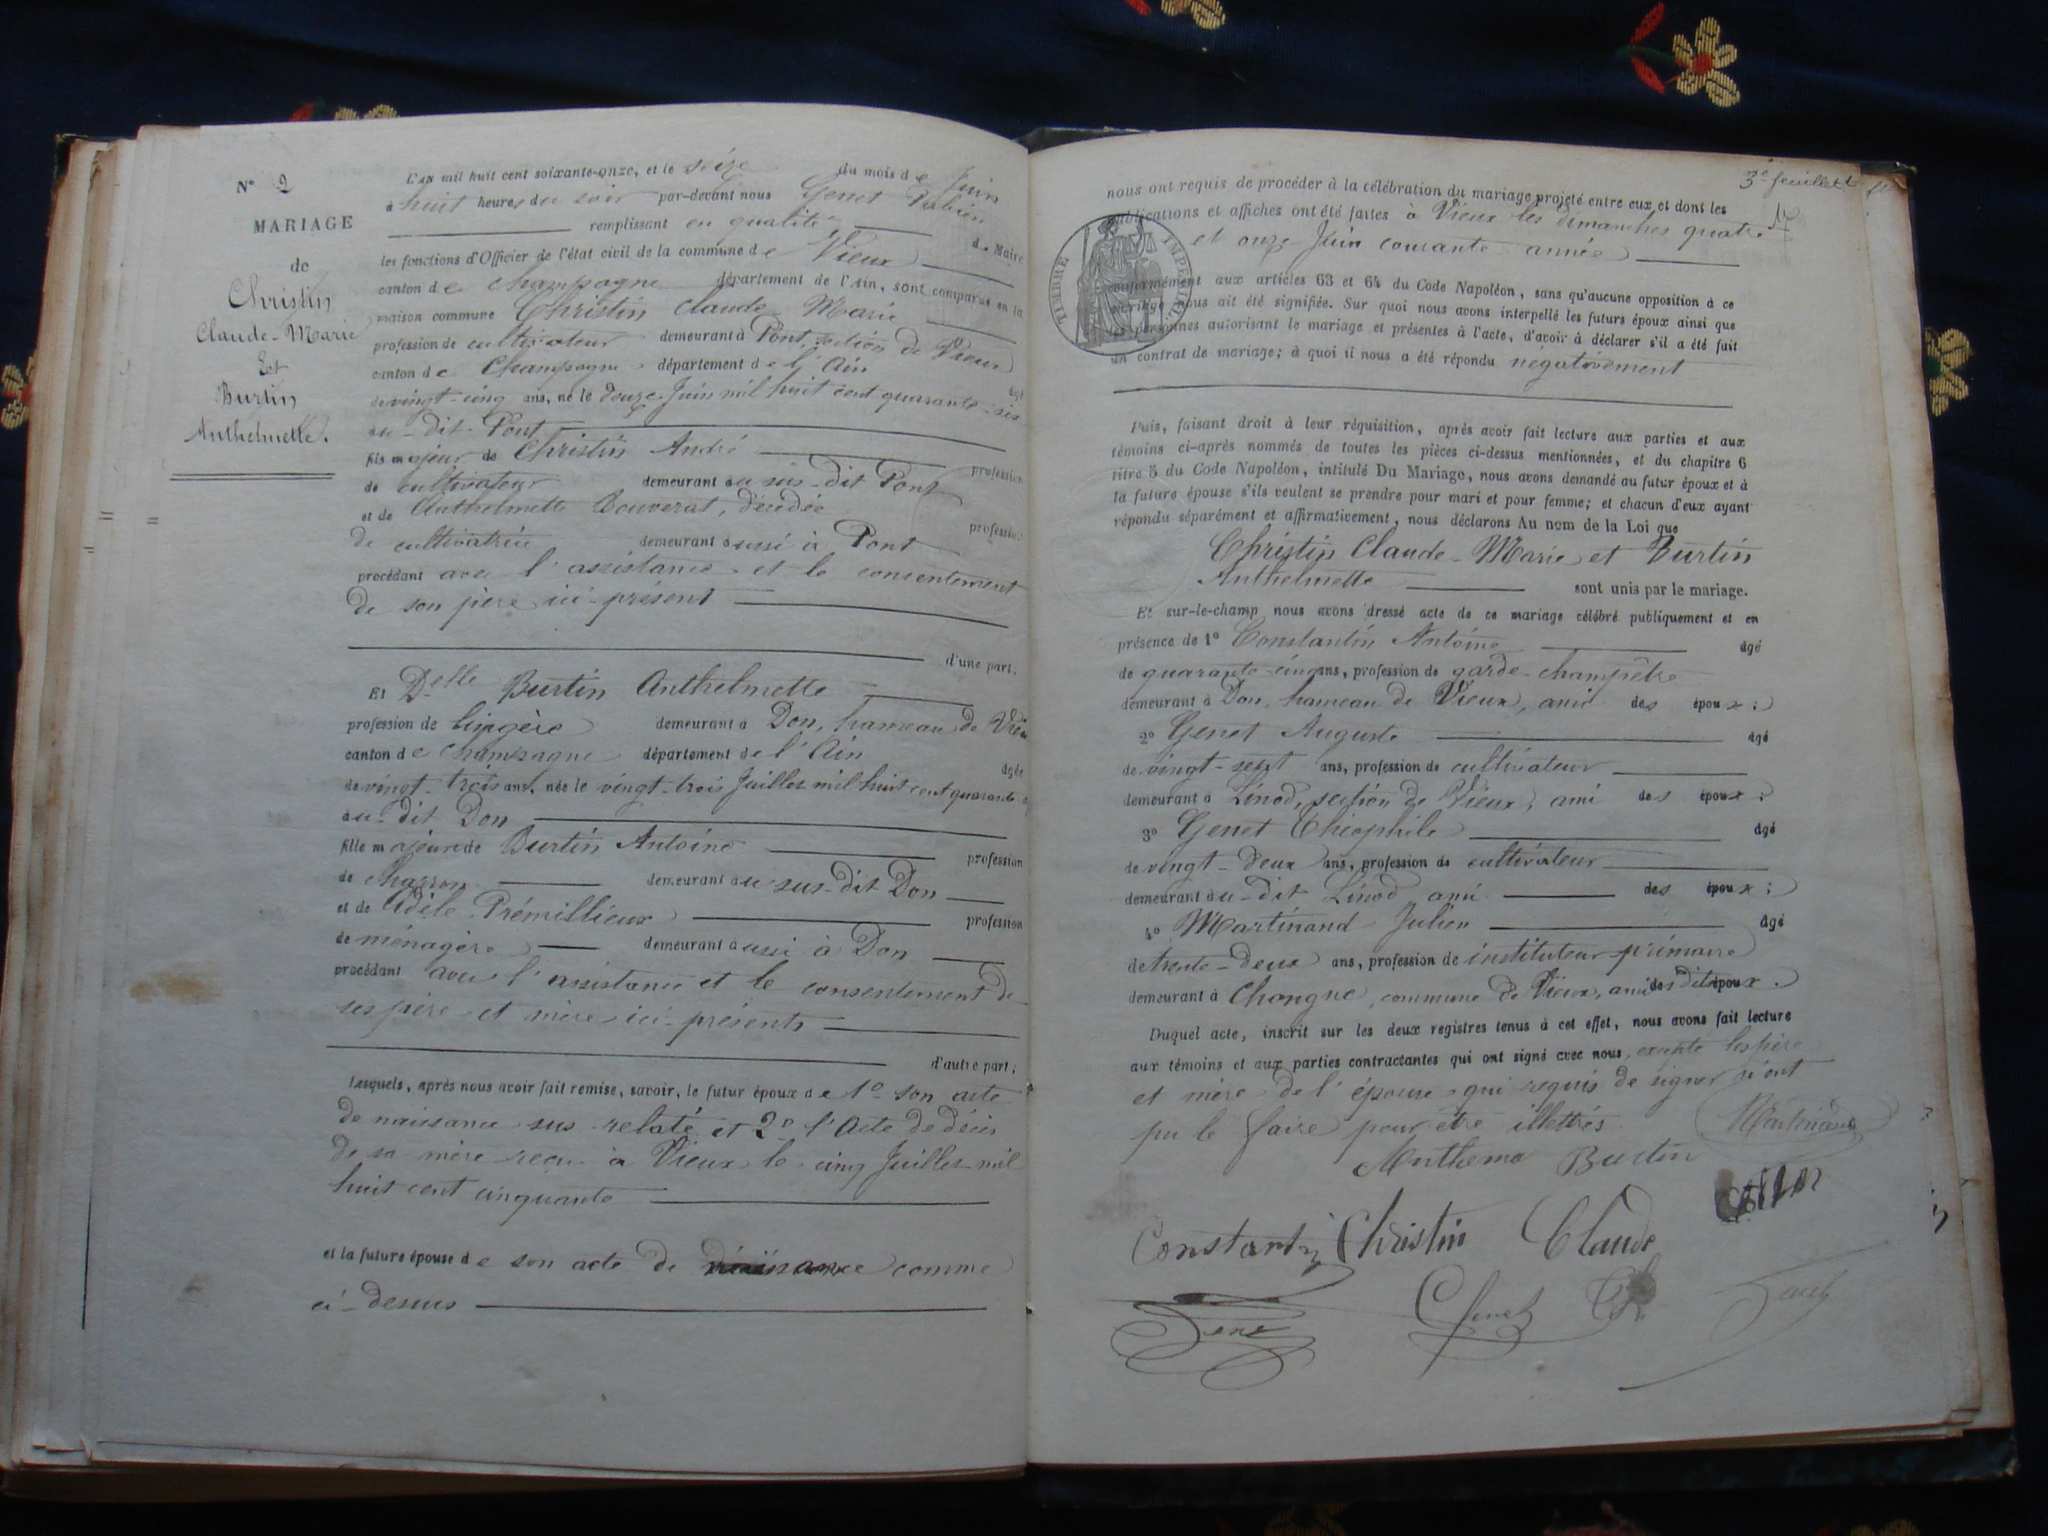 N° 2
MARIAGE
de
Christin
Claude-Marie
Et
Burtin
Anthelmette.
L'an mil huit cent soixante-onze, et le seize du mois de Juin
à huit heures du soir par-devant nous Genet Fabien
remplissant en qualité de Maire
les fonctions d'Officier de l'état civil de la commune de Vieux
canton de Champagne département de l'Ain, sont comparus en la
maison commune Christin Claude-Marie
profession de cultivateur demeurant à Pont, section de Vieux
canton de Champagne département de l'Ain âgé
de vingt-cinq ans, né le douze Juin mil huit cent quarante-six
au-dit Pont
fils majeur de Christin André profession
de cultivateur demeurant au sus-dit Pont
et de Anthelmette Bouverat, décédée profession
de cultivatrice demeurant aussi à Pont
procédant avec l'assistance et le consentement
de son père ici-présent
d'une part.
Et Delle Burtin Anthelmette
profession de lingère demeurant à Don, hameau de Vieu
canton de Champagne département de l'Ain âgée
de vingt-trois ans, née le vingt-trois Juillet mil huit cent quarante
au-dit Don
fille majeure de Burtin Antoine profession
de charron demeurant au sus-dit Don
et de Adèle Prémillieux profession
de ménagère demeurant aussi à Don
procédant avec l'assistance et le consentement de
ses père et mère ici-présents
d'autre part;
Lesquels, après nous avoir fait remise, savoir, le futur époux de 1° son acte
de naissance sus relaté et 2° l'Acte de décès
de sa mère reçu à Vieux le cinq Juillet mil
huit cent cinquante
et la future épouse de son acte de naissance comme
ci-dessus
3e feuillet
nous ont requis de procéder à la célébration du mariage projeté entre eux et dont les
publications et affiches ont été faites à Vieux les dimanches quatre
et onze Juin courante année
TIMBRE IMPERIAL
conformément aux articles 63 et 64 du Code Napoléon, sans qu'aucune opposition à ce
mariage nous ait été signifiée. Sur quoi nous avons interpellé les futurs époux ainsi que
les personnes autorisant le mariage et présentes à l'acte, d'avoir à déclarer s'il a été fait
un contrat de mariage; à quoi il nous a été répondu négativement
Puis, faisant droit à leur réquisition, après avoir fait lecture aux parties et aux
témoins ci-après nommés de toutes les pièces ci-dessus mentionnées, et du chapitre 6
titre 5 du Code Napoléon, intitulé Du Mariage, nous avons demandé au futur époux et à
la future épouse s'ils veulent se prendre pour mari et pour femme; et chacun d'eux ayant
répondu séparément et affirmativement, nous déclarons Au nom de la Loi que
Christin Claude-Marie et Burtin
Anthelmette sont unis par le mariage.
Et sur-le-champ nous avons dressé acte de ce mariage célébré publiquement et en
présence de 1° Constantin Antoine âgé
de quarante-cinq ans, profession de garde-champêtre
demeurant à Don, hameau de Vieux, ami des époux;
2° Genet Auguste âgé
de vingt-sept ans, profession de cultivateur
demeurant à Linod, section de Vieux, ami des époux;
3° Genet Théophile âgé
de vingt-deux ans, profession de cultivateur
demeurant au-dit Linod ami des époux;
4° Martinand Julien âgé
de trente-deux ans, profession de instituteur primaire
demeurant à Chongne, commune de Vieux, ami des dits époux.
Duquel acte, inscrit sur les deux registres tenus à cet effet, nous avons fait lecture
aux témoins et aux parties contractantes qui ont signé avec nous, excepté les père
et mère de l'épouse qui requis de signer n'ont
pu le faire pour être illettrés.
Martinand
Anthelme Burtin
Constantin Christin Claude
Genet Genet